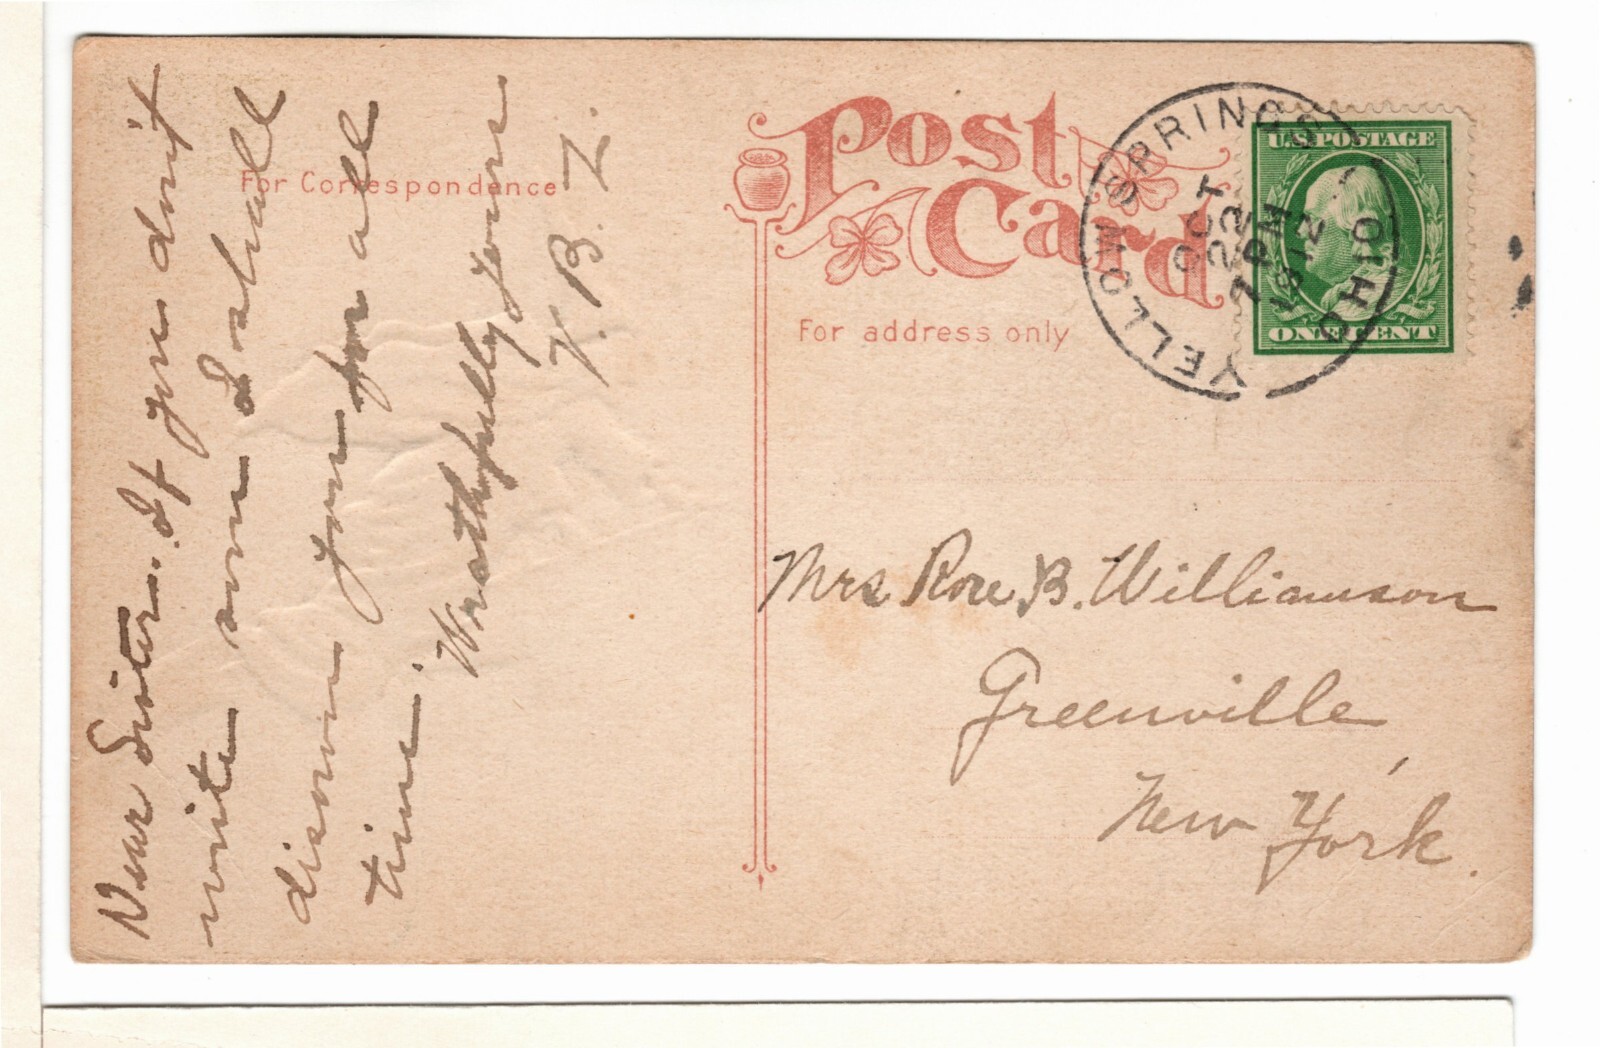 For Correspondence
Dear Sister. If you don't
write am I shall
disown you for all
time.
Wrathfully yours
V. B. Z.
Post
Card
For address only
YELLOW SPRINGS OHIO
OCT
22
7 PM
1912
U.S. POSTAGE
ONE CENT
Mrs Rose B. Williamson
Greenville,
New York.